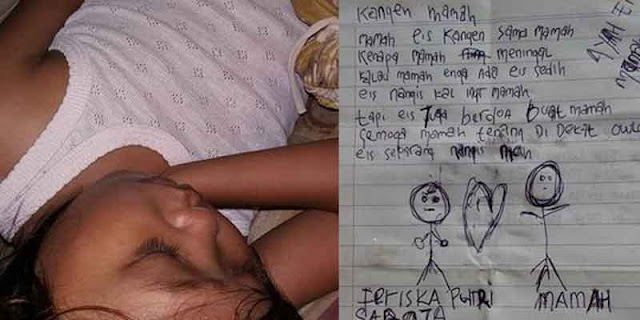 Kangen mamah
mamah eis Kangen sama mamah
Kenapa mamah meninggal
kalau mamah enga ada eis sedih
eis nangis kal ingt mamah
tapi eis Juga berdoa buat mamah
semoga mamah tenang Di Dekit
eis sekarang nangis
AYAH
PUTRI
MAMAH